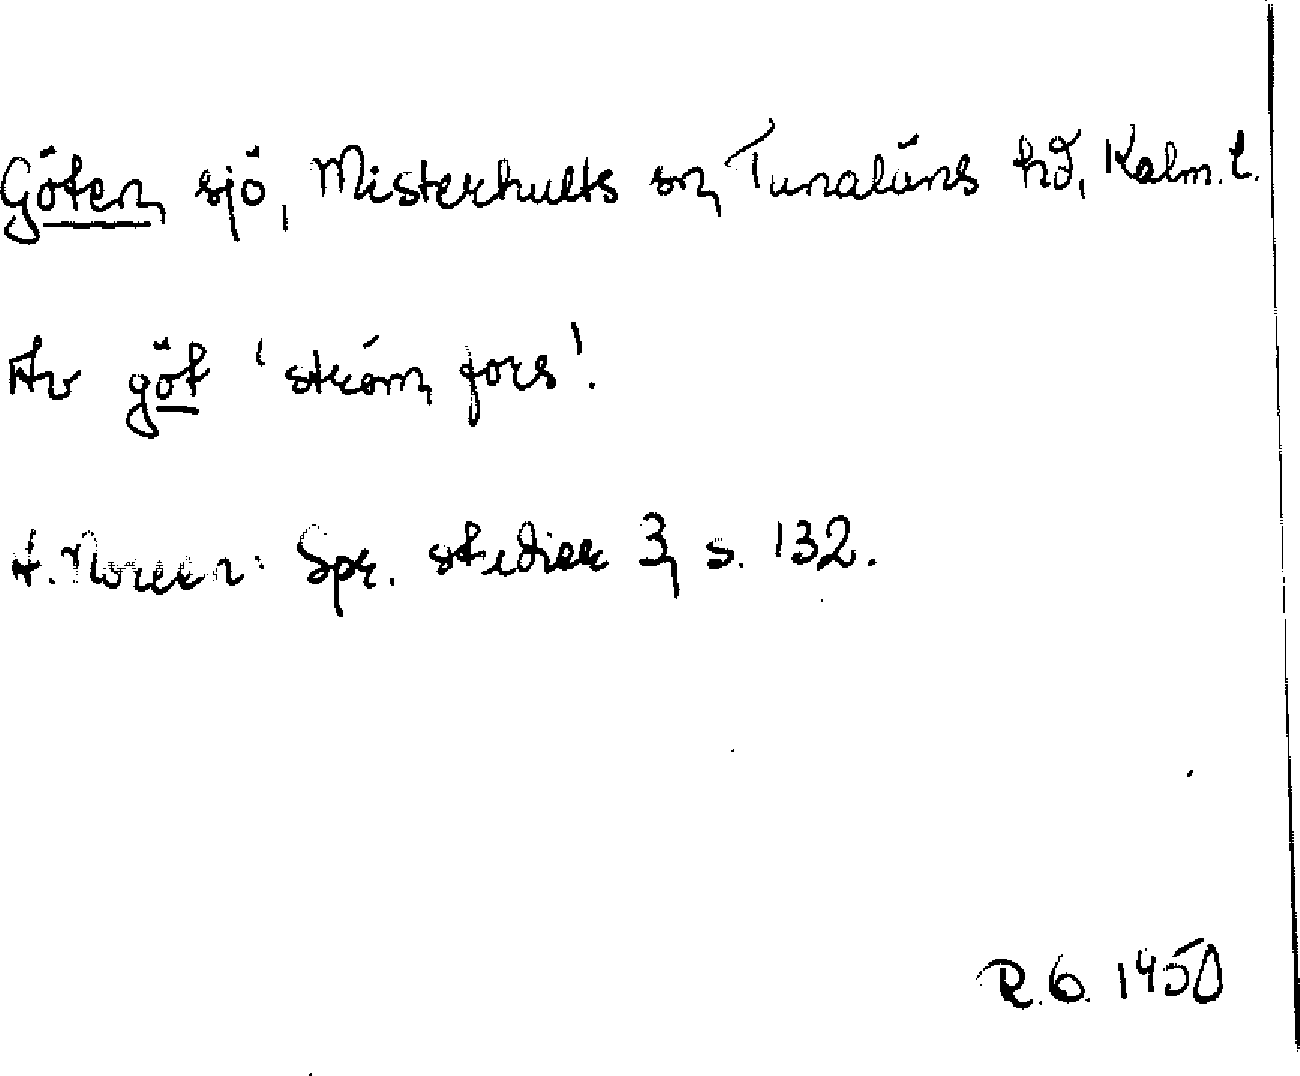 Göten, sjö, Misterhults sn, Tunaläns hd, Kalm. l.
Av göt 'ström, fors'.
H. Noreen: Spr. studier 3, s. 132.
R.G. 1950